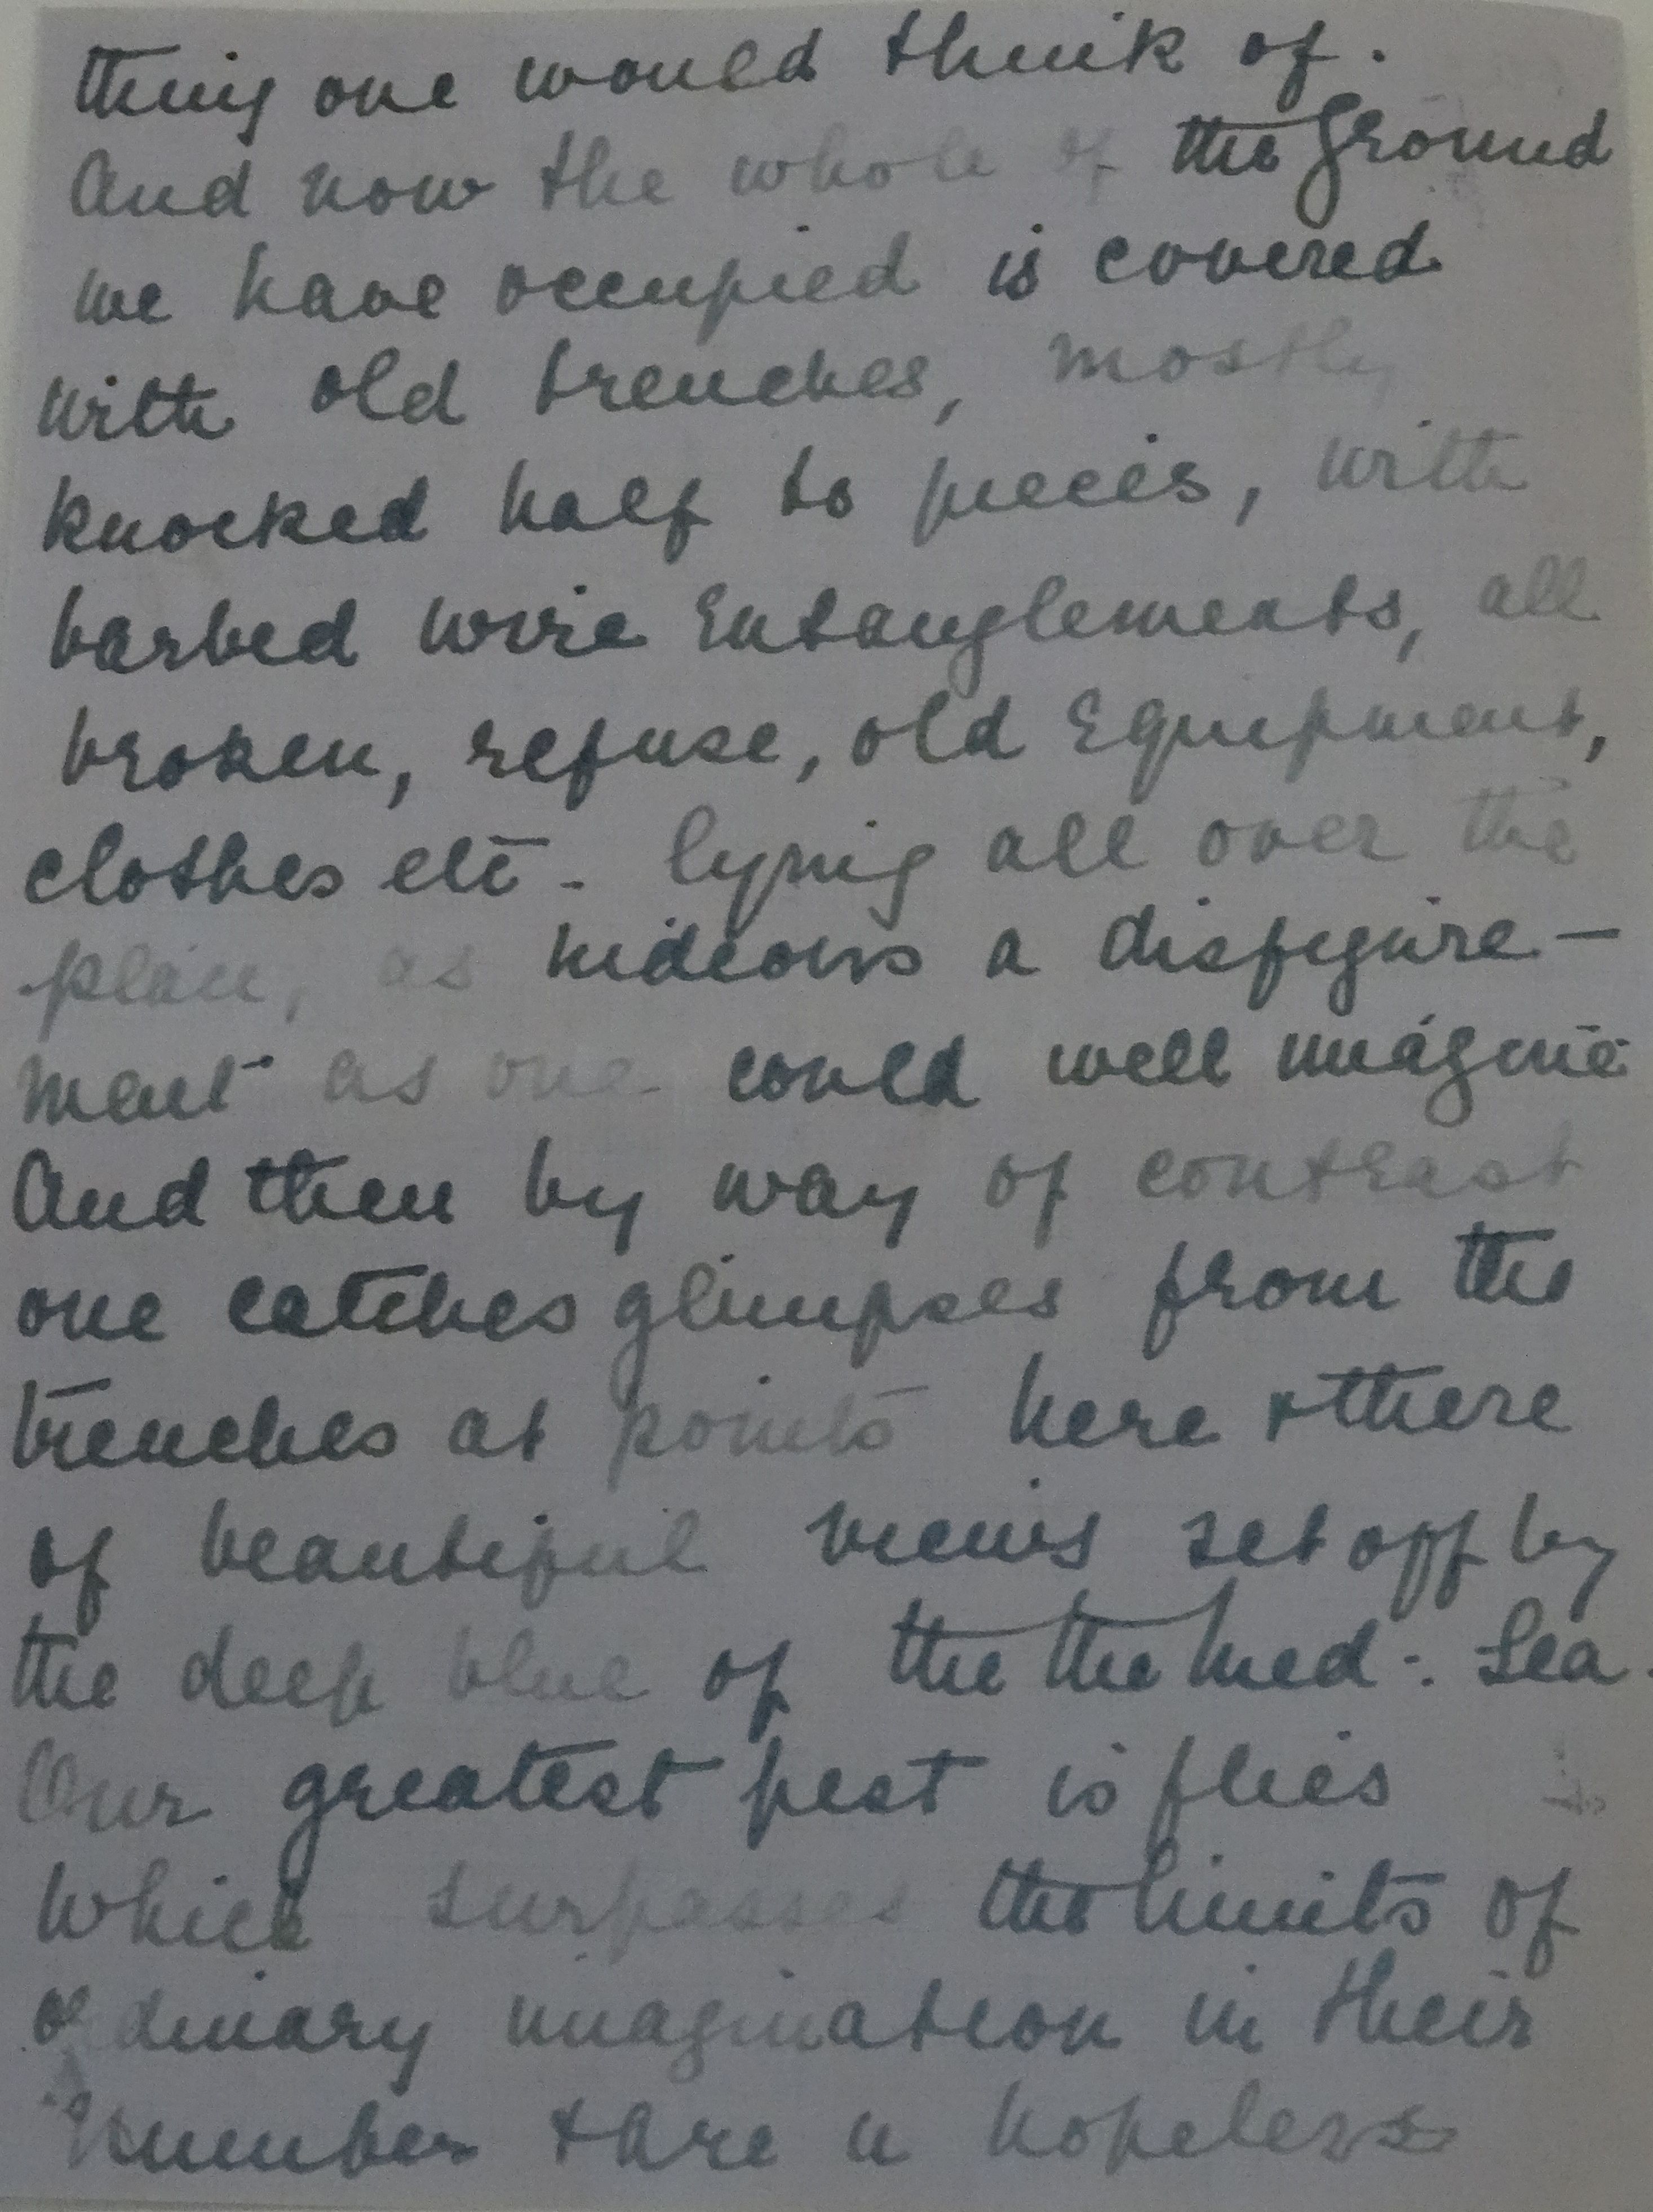 thing one would think of.
And now the whole of the ground
we have occupied is covered
with old trenches, mostly
knocked half to pieces, with
barbed wire Entanglements, all
broken, refuse, old Equipment,
clothes etc - lying all over the
place, as hideous a disfigure-
ment as one could well imagine
And then by way of contrast
one catches glimpses from the
trenches at points here & there
of beautiful views set off by
the deep blue of the the Med: Sea.
Our greatest pest is flies
which surpasses the limits of
ordinary imagination in their
number & are a hopeless